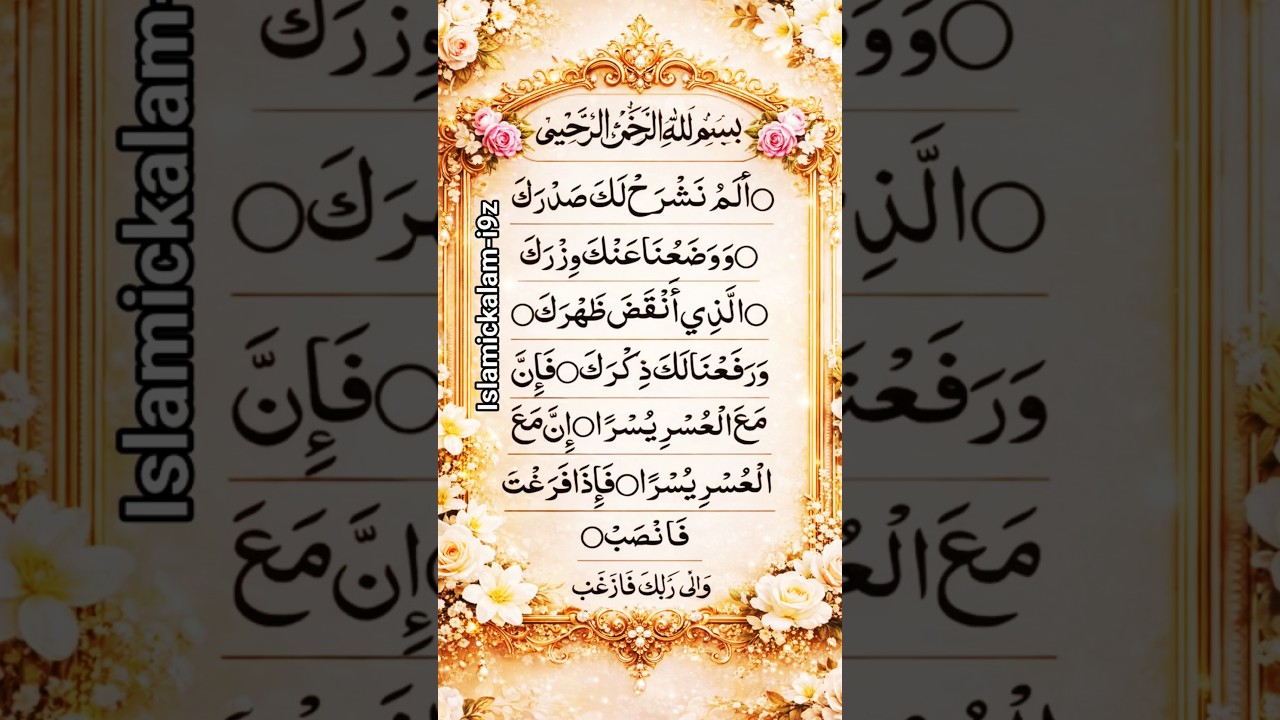 بسم الله الرحمن الرحيم
○أَلَمْ نَشْرَحْ لَكَ صَدْرَكَ
○وَوَضَعْنَا عَنْكَ وِزْرَكَ
○الَّذِي أَنْقَضَ ظَهْرَكَ○
وَرَفَعْنَا لَكَ ذِكْرَكَ○فَإِنَّ
مَعَ الْعُسْرِ يُسْرًا○إِنَّ مَعَ
الْعُسْرِ يُسْرًا○فَإِذَا فَرَغْتَ
فَانْصَبْ○
وَالٰى رَبِكَ فَارْغَبْ
Islamickalam-i9z